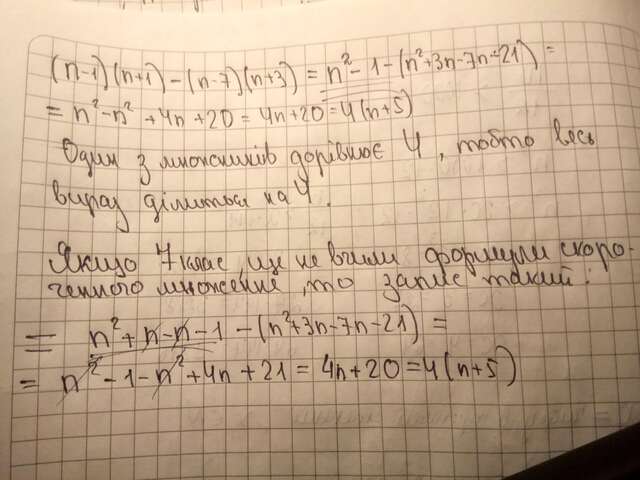 (n-1)(n+1) - (n-7)(n+3) = n² - 1 - (n² + 3n - 7n - 21) =
= n² - n² + 4n + 20 = 4n + 20 = 4(n+5)
Один з множників дорівнює 4, тобто весь
вираз ділиться на 4.
Якщо 7 клас ще не вчили формули скоро-
ченого множення, то запис такий:
= n² + n - n - 1 - (n² + 3n - 7n - 21) =
= n² - 1 - n² + 4n + 21 = 4n + 20 = 4(n+5)